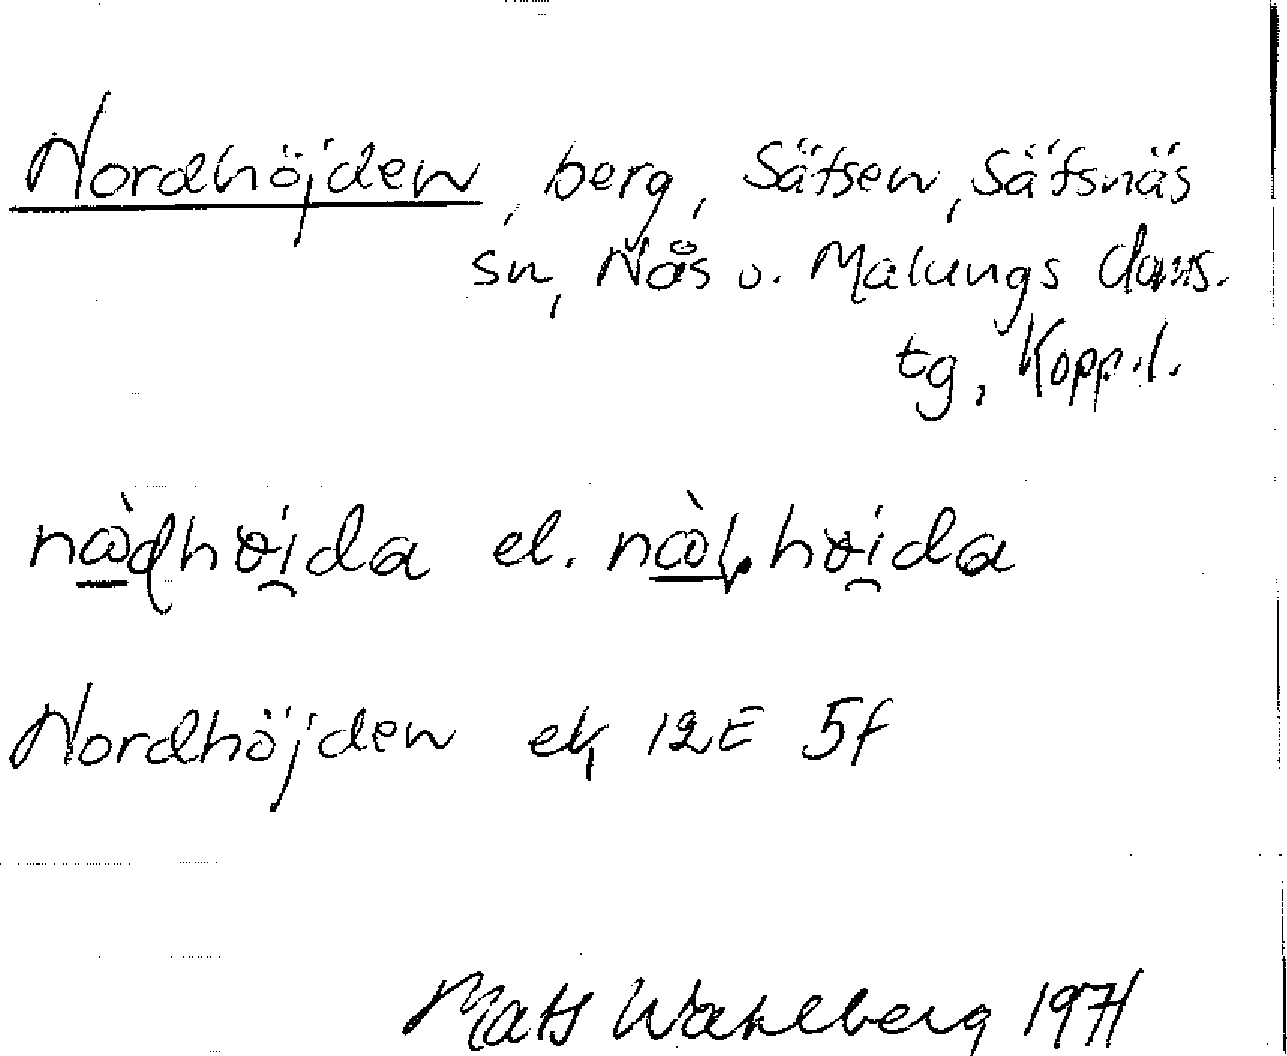 Nordhöjden, berg, Säfsen, Säfsnäs
sn, Nås o. Malungs doms.
tg, Kopp.l.
el.
Nordhöjden ek 12E 5f
Mats Wahlberg 1971